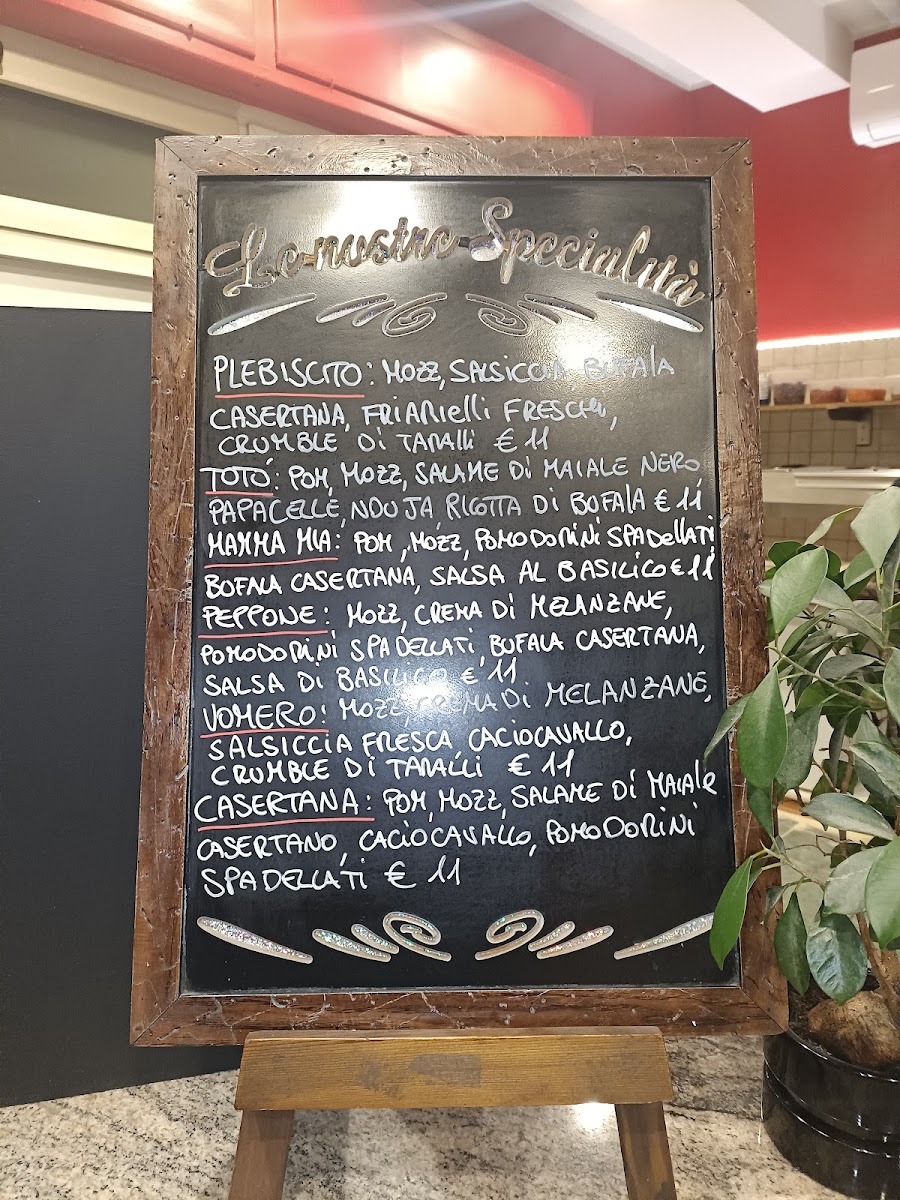 Le nostre Specialità
PLEBISCITO: MOZZ, SALSICCIA, BUFALA
CASERTANA, FRIARIELLI FRESCHI,
CRUMBLE DI TARALLI € 11
TOTO': POM, MOZZ, SALAME DI MAIALE NERO
PAPACELLE, NDUJA RICOTTA DI BUFALA € 11
MAMMA MIA: POM, MOZZ, POMODORINI SPADELLATI
BUFALA CASERTANA, SALSA AL BASILICO € 11
PEPPONE: MOZZ, CREMA DI MELANZANE,
POMODORINI SPADELLATI, BUFALA CASERTANA,
SALSA DI BASILICO € 11
VOMERO: MOZZ, CREMA DI MELANZANE,
SALSICCIA FRESCA, CACIOCAVALLO,
CRUMBLE DI TARALLI € 11
CASERTANA: POM, MOZZ, SALAME DI MAIALE
CASERTANO, CACIOCAVALLO, POMODORINI
SPADELLATI € 11